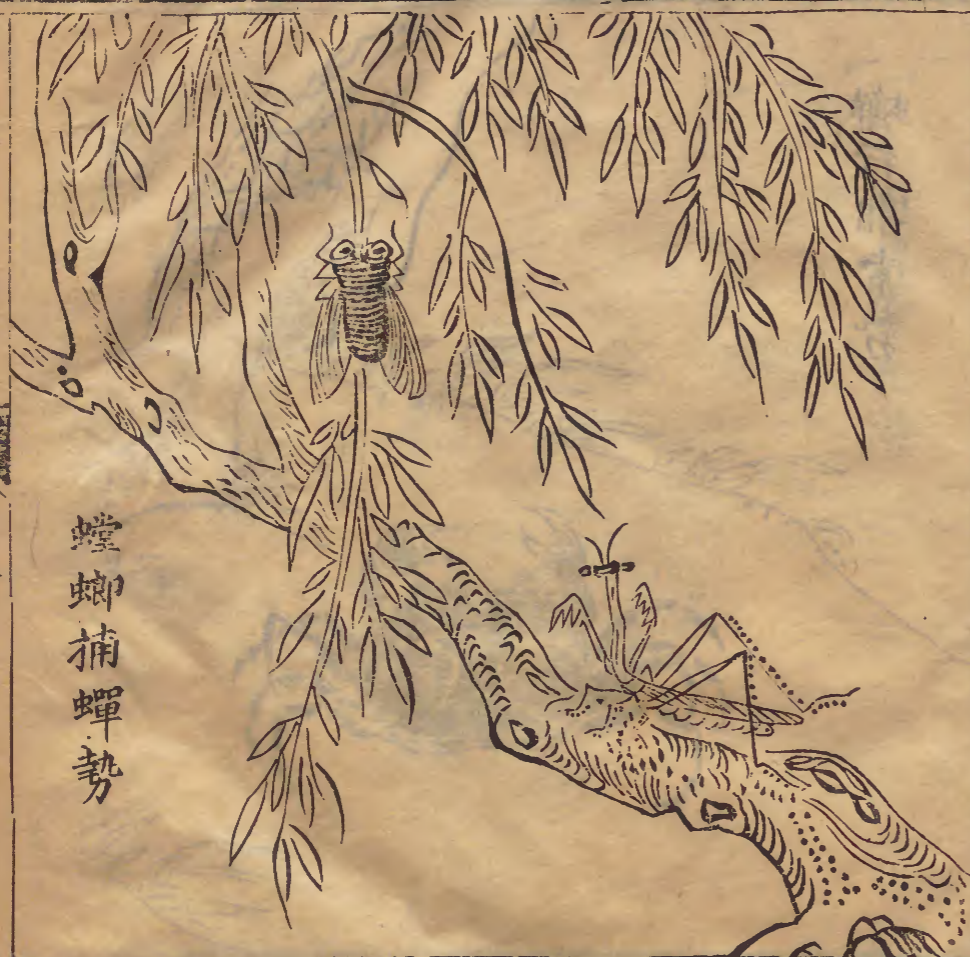 螳螂捕蟬勢